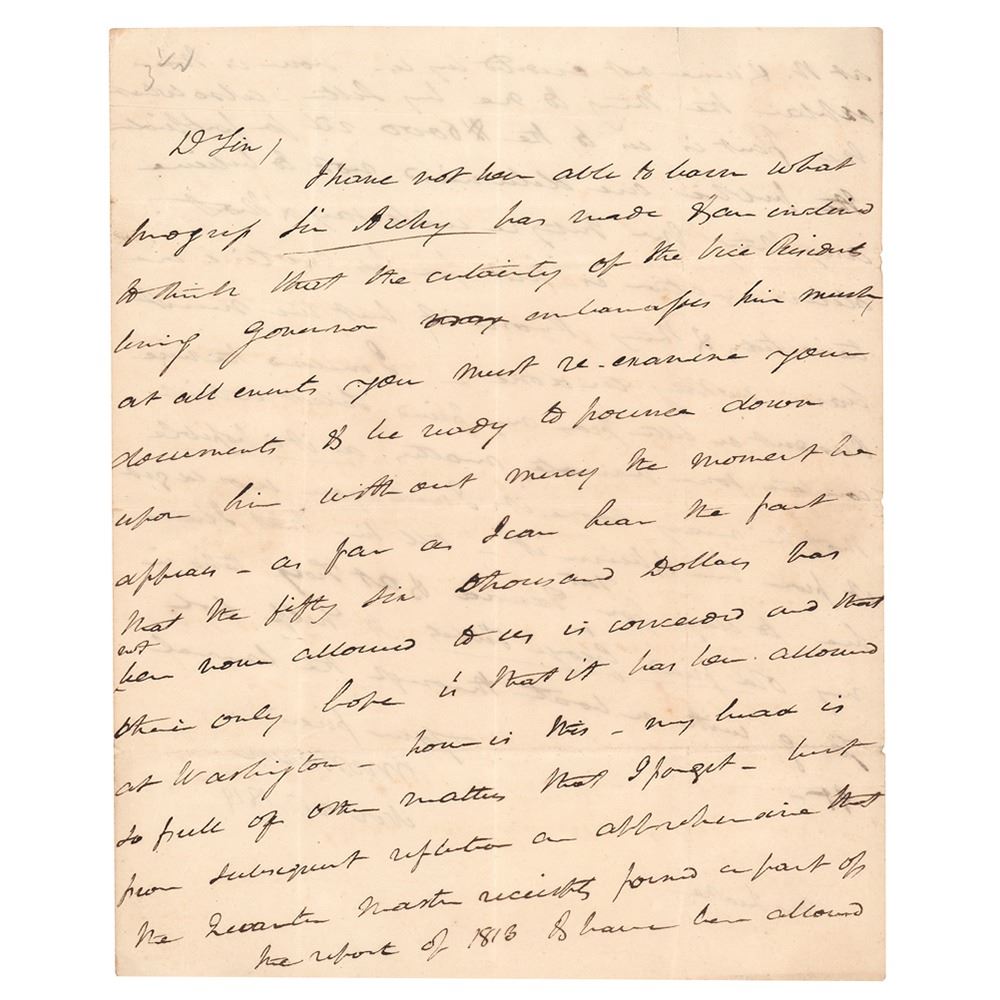 D Sir /
I have not been able to learn what
progress Sir Archy has made & am inclined
to think that the certainty of the Vice President
being Governor embarrasses him much,
at all events you must re-examine your
documents & be ready to pounce down
upon him without mercy the moment he
appears - as far as I can hear the fact
that the fifty Six thousand Dollars has
not
been allowed to us is conceded and that
their only hope is that it has been allowed
at Washington - how is this - my head is
so full of other matters that I forget - but
from subsequent reflection am apprehensive that
the Quarter Master receipts formed a part of
the report of 1813 & have been allowed